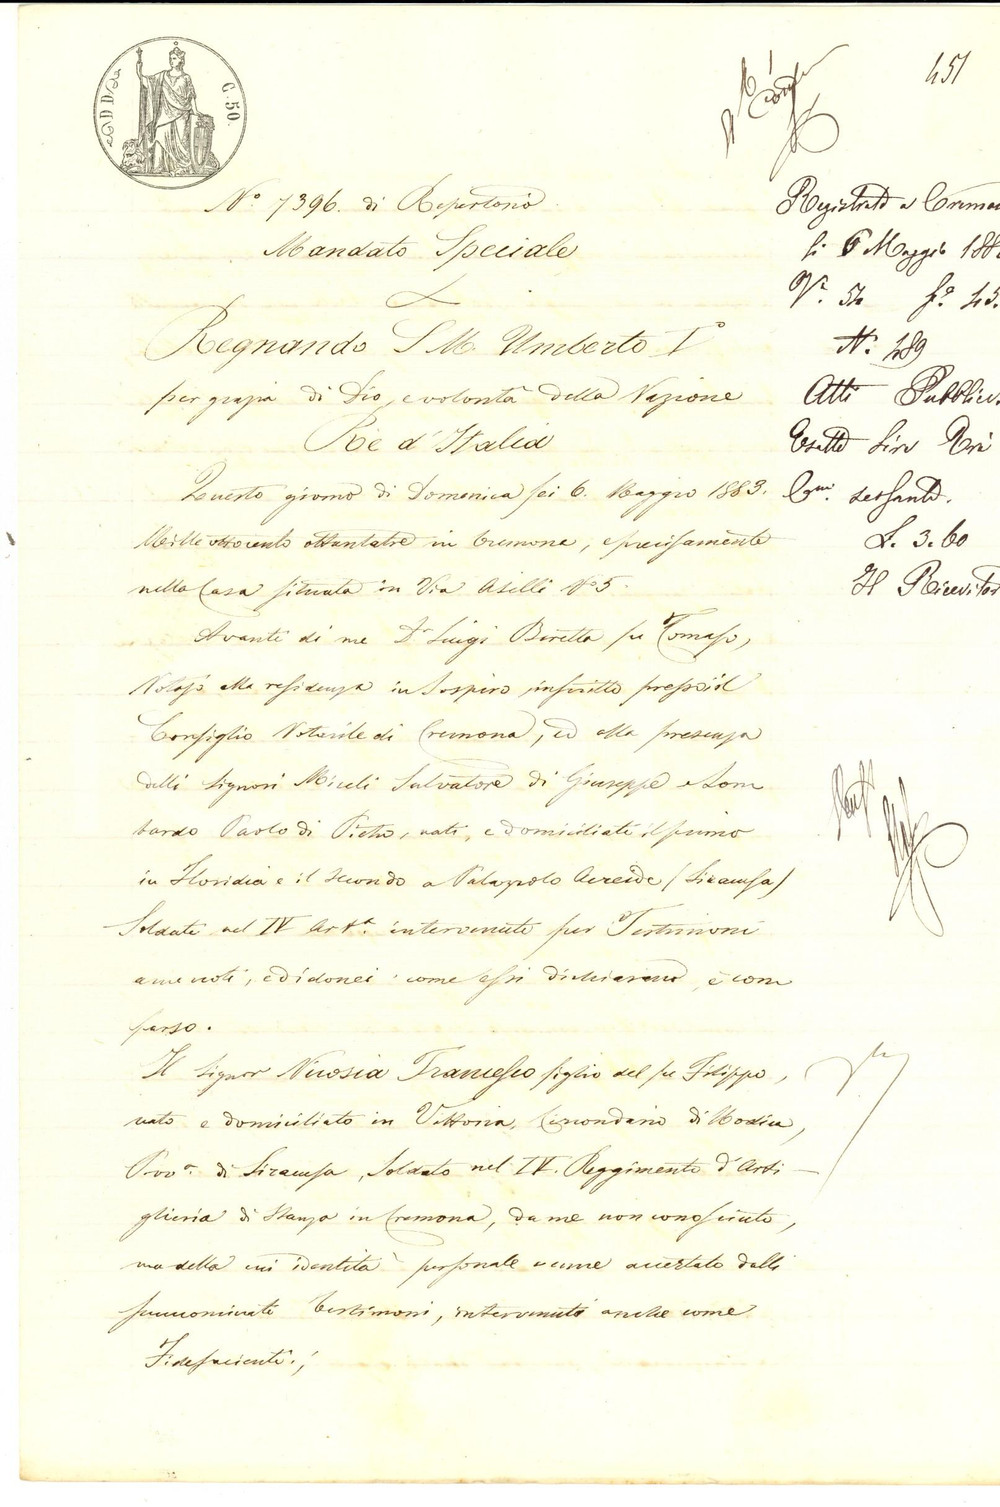 C. 50.
451
N.° 7396. di Repertorio
Mandato Speciale
Regnando S M Umberto I°
per grazia di Dio, e volontà della Nazione
Re d'Italia
Questo giorno di Domenica sei 6. Maggio 1883.
Mille ottocento ottantatre in Cremona, e precisamente
nella Casa situata in Via Aselli N° 5.
Avanti di me Dr Luigi Beretta fu Tomaso,
Notajo alla residenza in Sospiro, inscritto presso il
Consiglio Notarile di Cremona, ed alla presenza
delli Signori Miceli Salvatore di Giuseppe e Lom
bardo Paolo di Pietro, nati, e domiciliati il primo
in Floridia e il secondo a Palazzolo Acreide (Siracusa)
Soldati nel IV Artª. intervenuti per Testimoni
a me noti, ed idonei come essi dichiarano, è com
parso.
Il Signor Nicosia Francesco figlio del fu Filippo,
nato e domiciliato in Vittoria, Circondario di Modica,
Provª. di Siracusa, Soldato nel IV. Reggimento d'Arti-
glieria di Stanza in Cremona, da me non conosciuto,
ma della cui identità personale venne accertato dalli
prenominati testimoni, intervenuti anche come
Fidefacienti;
Registrato a Cremona
li 6 Maggio 188
Vº. 54 fº. 45.
N. 489
Atti Pubblici
Esatte Lire Tre
Cmi. sessanta.
L. 3.60
Il Ricevitor